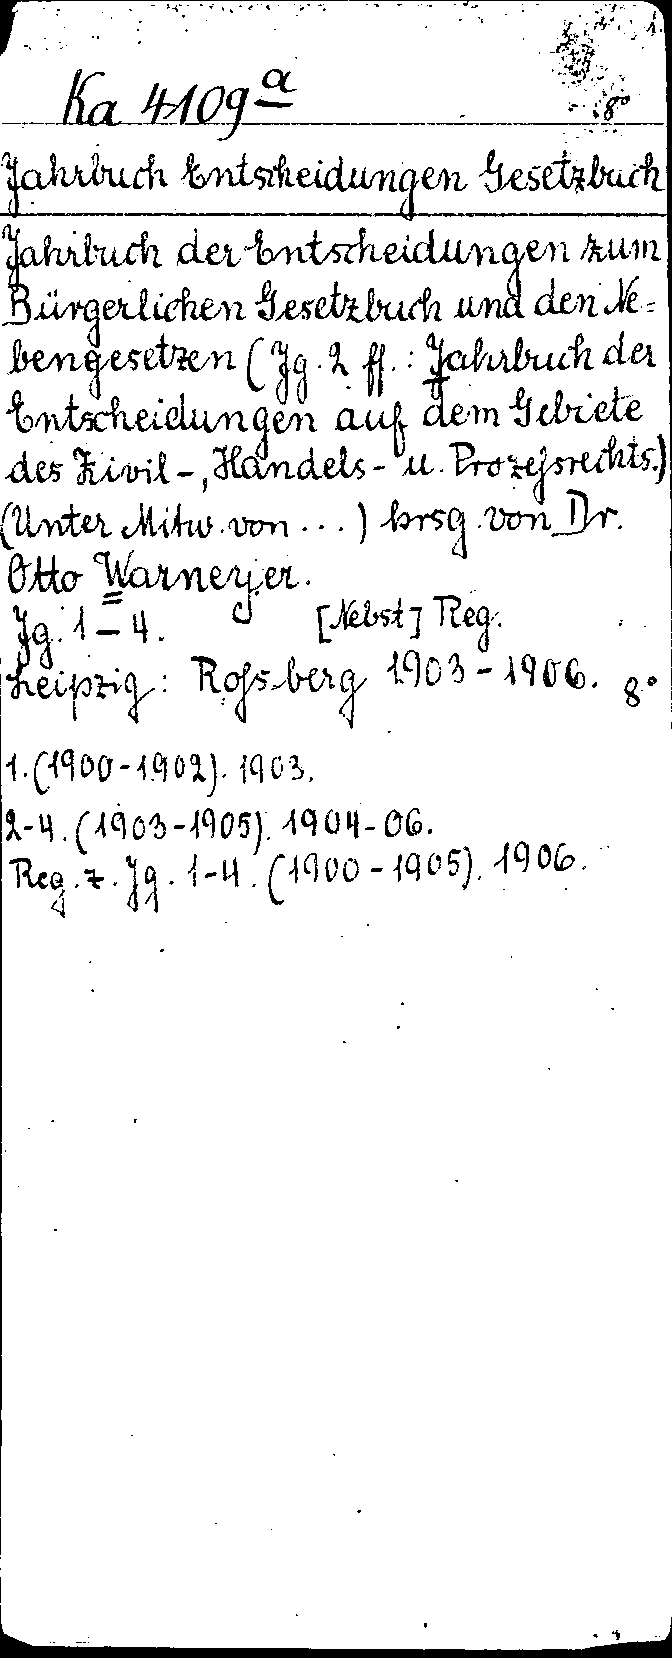 1.
Ka 4109 a
8°
Jahrbuch Entscheidungen Gesetzbuch
Jahrbuch der Entscheidungen zum
Bürgerlichen Gesetzbuch und den Ne=
bengesetzen (Jg. 2 ff.: Jahrbuch der
Entscheidungen auf dem Gebiete
des Zivil-, Handels- u. Prozeßrechts.)
(Unter Mitw. von ...) hrsg. von Dr.
Otto Warneyer.
Jg. 1-4. [Nebst] Reg.
Leipzig: Roßberg 1903-1906. 8°
1. (1900-1902). 1903.
2-4. (1903-1905). 1904-06.
Reg. z. Jg. 1-4. (1900-1905). 1906.